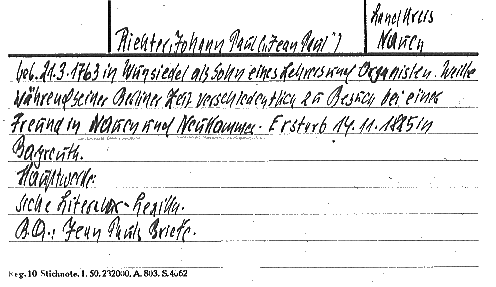 Landkreis
Richter, Johann Paul („Jean Paul")
Nauen
geb. 21.3.1763 in Wunsiedel als Sohn eines Lehrers und Organisten. Weilte
während seiner Berliner Zeit verschiedentlich zu Besuch bei einer
Freundin Nauen und Neukammer. Er starb 14.11.1825 in
Bayreuth.
Hauptwerke:
siehe Literatur-Lexikon.
B.Q.: Jean Pauls Briefe.
Reg. 10 Stichnote. I. 50. 232000. A. 803. S. 4062